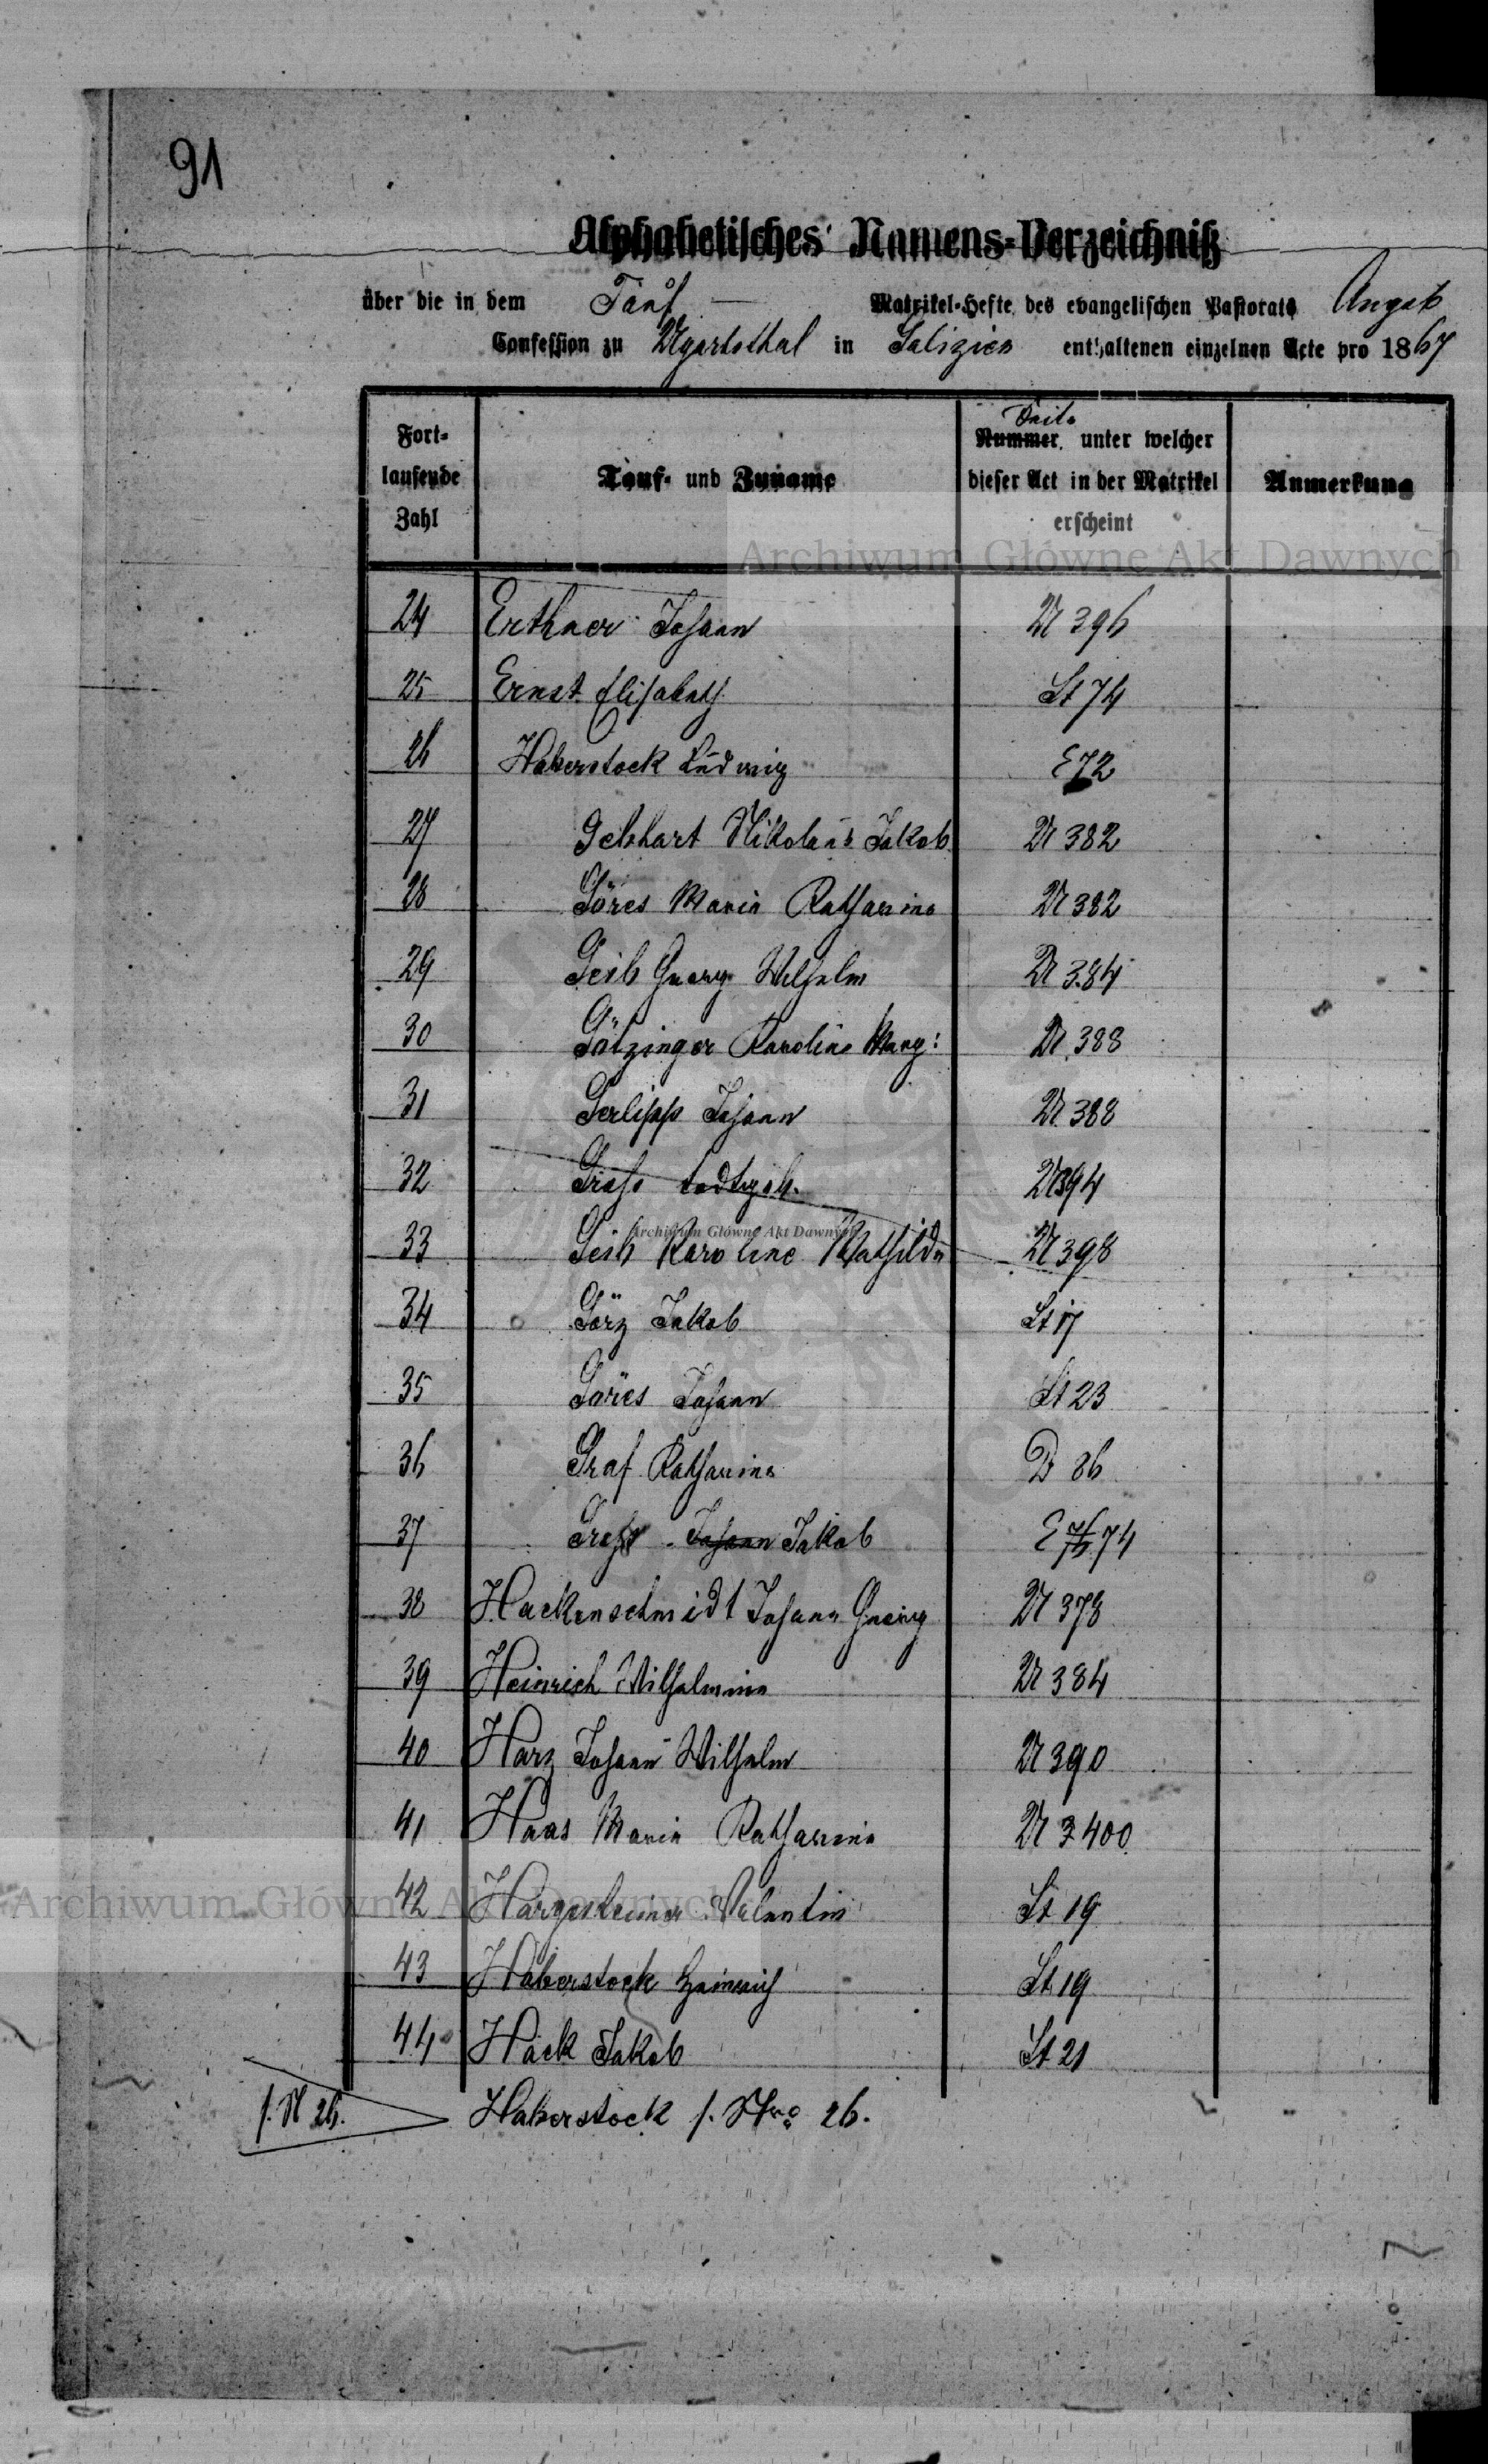 91
Alphabetisches Namens-Verzeichniß
über die in dem Tauf Matrikel-Hefte des evangelischen Pastorats Augsb
Confession zu Ugartsthal in Galizien enthaltenen einzelnen Acte pro 1867
Fortlaufende Zahl Tauf- und Zuname Seite Nummer, unter welcher dieser Act in der Matrikel erscheint Anmerkung
24 Erthner Johann U 396
25 Ernst Elisabeth St 74
26 Haberstock Ludwig E 72
27 Gebhart Nikolaus Jakob U 382
28 Göres Maria Katharina U 382
29 Geib Georg Wilhelm U 384
30 Götzinger Karoline Marg: U 388
31 Gerlipp Johann U 388
32 Groß todtgeb. U 394
33 Geib Karoline Mathilde U 398
34 Görz Jakob St 17
35 Göres Johann St 23
36 Graf Katharina D 86
37 Johann Jakob E 74
38 Hackenschmidt Johann Georg U 378
39 Heinrich Wilhelmina U 384
40 Harz Johann Wilhelm U 390
41 Haas Maria Katharina U 3 400
42 Hargesheimer Valentin St 19
43 Haberstock Heinrich St 19
44 Hack Jakob St 21
s. N 26. Haberstock s. Nro 26.
Archiwum Główne Akt Dawnych
Archiwum Główne Akt Dawnych
Archiwum Główne Akt Dawnych